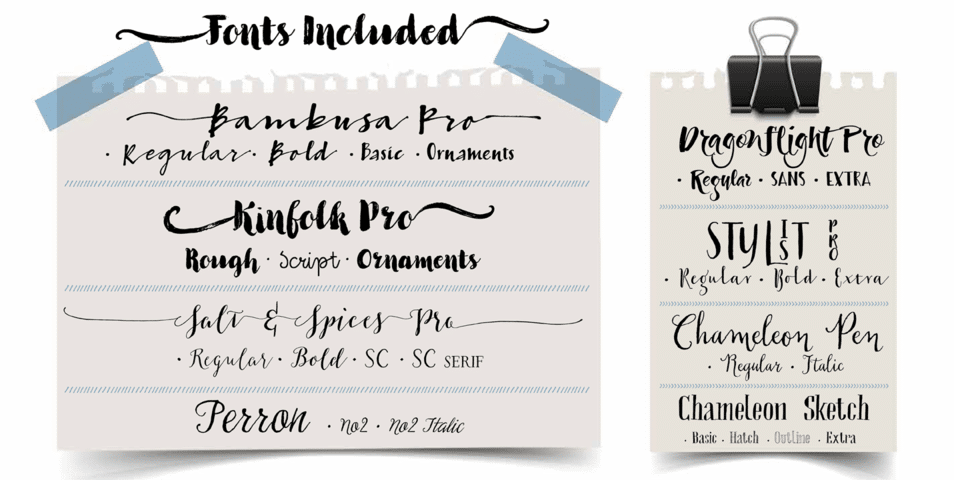 Fonts Included
Bambusa Pro
· Regular · Bold · Basic · Ornaments
Kinfolk Pro
Rough · Script · Ornaments
Salt & Spices Pro
· Regular · Bold · SC · SC SERIF
Perron · No2 · No2 Italic
Dragonflight Pro
· Regular · SANS · EXTRA
STYLIST PRO
· Regular · Bold · Extra
Chameleon Pen
· Regular · Italic
Chameleon Sketch
· Basic · Hatch · Outline · Extra